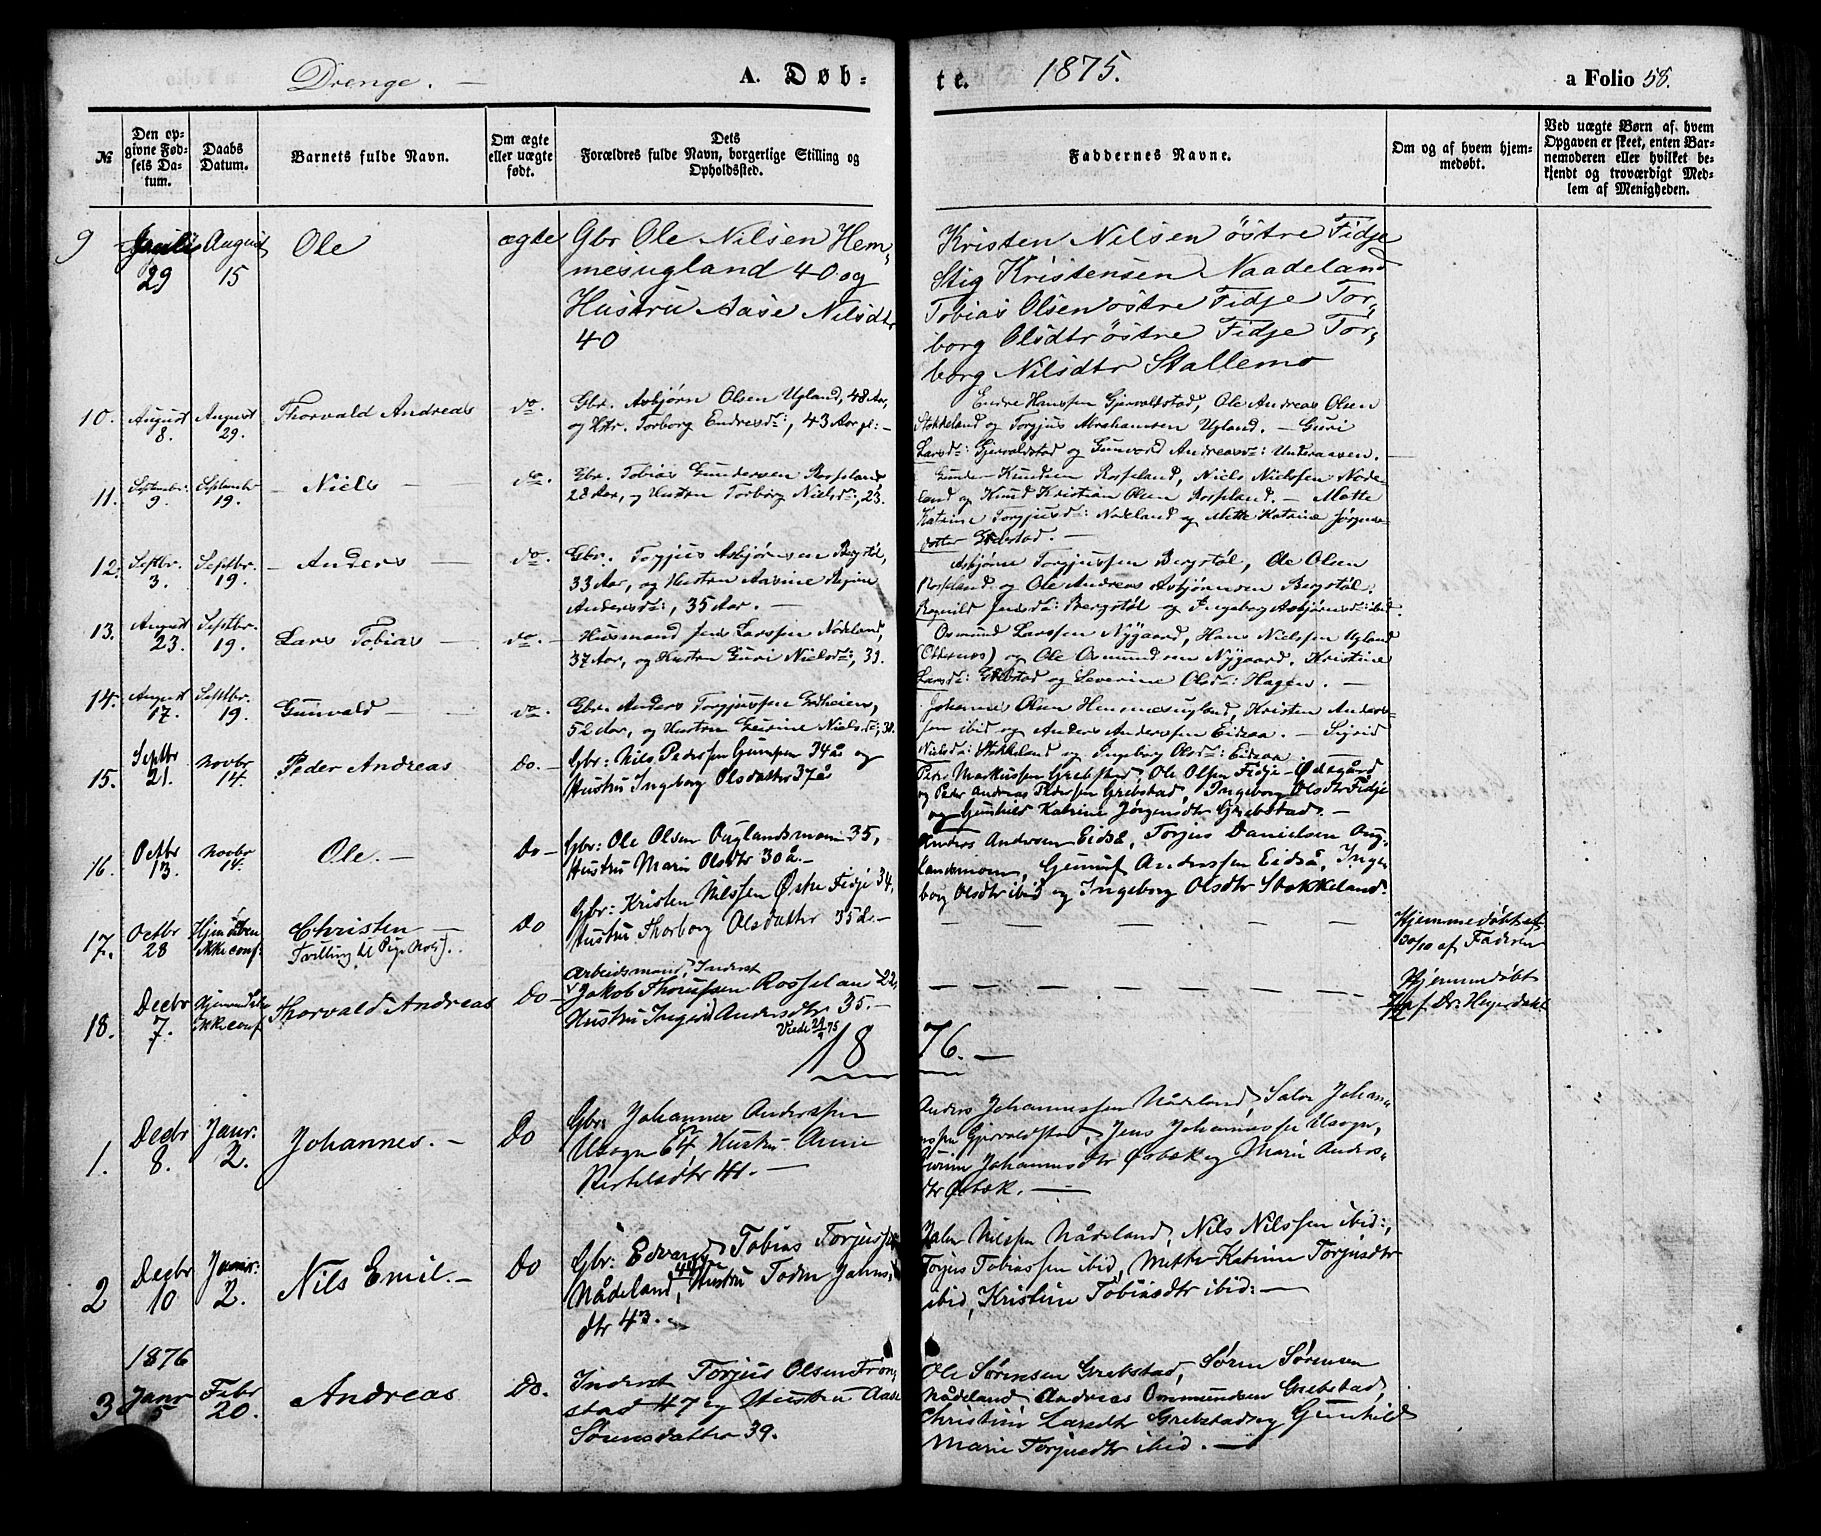 Drenge. —
A. Døb-
te.
1875.
a Folio 58.
№
Den op-
givne Fød-
sels Da-
tum.
Daabs
Datum.
Barnets fulde Navn.
Om ægte
eller uægte
født.
Dets
Forældres fulde Navn, borgerlige Stilling og
Opholdssted.
Faddernes Navne.
Om og af hvem hjem-
medøbt.
Ved uægte Børn af hvem
Opgaven er skeet, enten Bar-
nemoderen eller hvilket be-
kjendt og troværdigt Med-
lem af Menigheden.
9
Juli
29
August
15
Ole
ægte
Gbr Ole Nilsen Hem-
mesugland 40 og
Hustru Aase Nilsdtr
40
Kristen Nilsen östre Fidje
Stig Kristensen Naadeland
Tobias Olsen östre Fidje Tor-
borg Olsdtr östre Fidje Tor-
borg Nilsdtr Stallemo
10.
August
8.
August
29.
Thorvald Andreas
do.
Gbr. Asbjørn Olsen Ugland, 48 Aar,
og Hstr. Torborg Endresd:, 43 Aar gl: –
Endre Hanssen Gjervaldstad, Ole Andreas Olsen
Stokkeland og Torgjus Abrahamsen Ugland. – Guri
Larsd: Gjervaldstad og Gunvord Andreasd: Underaasen.
11.
Septembr.
9.
Septembr
19.
– Niels –
do.
Gbr. Tobias Gundersen Rosseland,
28 Aar, og Hustru Torborg Nielsd:, 23.
Gunder Knudsen Rosseland, Niels Nielssen Node-
land og Knud Kristian Olsen Rosseland. – Mette
Katrine Torgjusd: Nodeland og Mette Katrine Jørgens-
datter Grebstad. –
12.
Septbr.
3.
Septbr.
19.
– Anders –
do.
Gbr. Torgjus Asbjørnsen Bergstøl,
33 Aar, og Hustru Aasine Regine
Andersd:, 35 Aar. –
Asbjørn Torgjussen Bergstøl, Ole Olsen
Rosseland og Ole Andreas Asbjørnsen Bergstøl.
Ragnild Jensd: Bergstøl og Ingeborg Asbjørnsd: ibid.
13.
August
23.
Septbr.
19.
Lars Tobias –
do. –
Husmand Jens Larssen Nodeland,
37 Aar, og Hustru Guri Nielsd:, 39.
Osmund Larssen Nygaard, Hans Nielssen Ugland
(Oddernæs) og Ole Osmundsen Nygaard. Kristine
Larsd: Grebstad og Severine Olsd: Hagen. –
14.
August
17.
Septbr.
19.
Gunvald –
do.
Gbr. Anders Torgjussen Eidheien,
52 Aar, og Hustru Gurine Nielsd:, 38.
Johannes Olsen Hemmesugland, Kristen Anders-
sen ibid og Anders Anderssen Eidsaa. – Sigrid
Nielsd: Stokkeland og Ingeborg Olsd: Eidsaa
15.
Septbr
21.
Novbr
14.
Peder Andreas
Do. –
Gbr: Nils Pederssen 34 år og
Hustru Ingeborg Olsdatter 37 å
Peder Markussen Grebstad, Ole Olsen Fidje-Ødegård
og Peder Andreas Pedersen Grebstad, Ingeborg Olsdtr Fidje
og Gunhild Katrine Jørgensdtr Grebstad. –
16.
Octbr
13.
Novbr
14.
Ole. –
Do –
Gbr: Ole Olsen Ouglandsmoen 35,
Hustru Marie Olsdtr 30 å –
Anders Andersen Eidså, Torjus Danielsen Oug-
landsmoen, Gunuf Anderssen Eidså, Inge-
borg Olsdtr ibid og Ingeborg Olsdtr Stokkeland.
17.
Octbr
28
Hjemdøben
ikke conf.
Christen –
Tvilling til Pige No 15.
Do
Gbr: Kristen Nilssen Østre Fidje 34,
Hustru Thorborg Olsdatter 35 å. –
Hjemmedøbt af
30/10 af Faderen
18.
Decbr
7.
Hjemmedøbt
Ikke conf.
Thorvald Andreas
Do –
Arbeidsmand, Inderst
Jakob Rosseland 22,
Hustru Ingrid Andersdtr 35. –
Viede 75
Hjemmedøbt
af Dr: Heyerdahl
18
76. –
1.
Decbr
8.
Janr.
2.
Johannes. –
Do
Gbr: Johannes Anderssen
Usogn 64, Hustru Anne
Kirstesdtr 41. –
Anders Johannessen Nådeland, Salve Johan-
nssen Gjervaldstad, Jens Johannessen Usogn,
Johannesdtr Øvbøk og Marie Anders-
dtr Øvbøk. –
2
Decbr
10
Janr.
2.
Nils Emil. –
Do
Gbr: Edvard Tobias Torjussen
Nådeland, 40 Hustru Joren Jahns-
dtr 43. –
Salve Nilssen Nådeland, Nils Nilssen ibid:,
Torjus Tobiassen ibid, Mette Katrine Torjusdtr
ibid, Kristine Tobiasdtr ibid: –
1876
3
Janr
5
Febr
20.
Andreas
Do.
Inderst Torjus Olsen Fron-
stad 47 og Hustru Aase
Sørensdatter 39.
Ole Sørensen Grebstad, Sören Sörensen
Nådeland, Andreas Ommundsen Grebstad,
Christine Larsdtr Grebstad og Gunhild
Marie Torjusdtr ibid. –